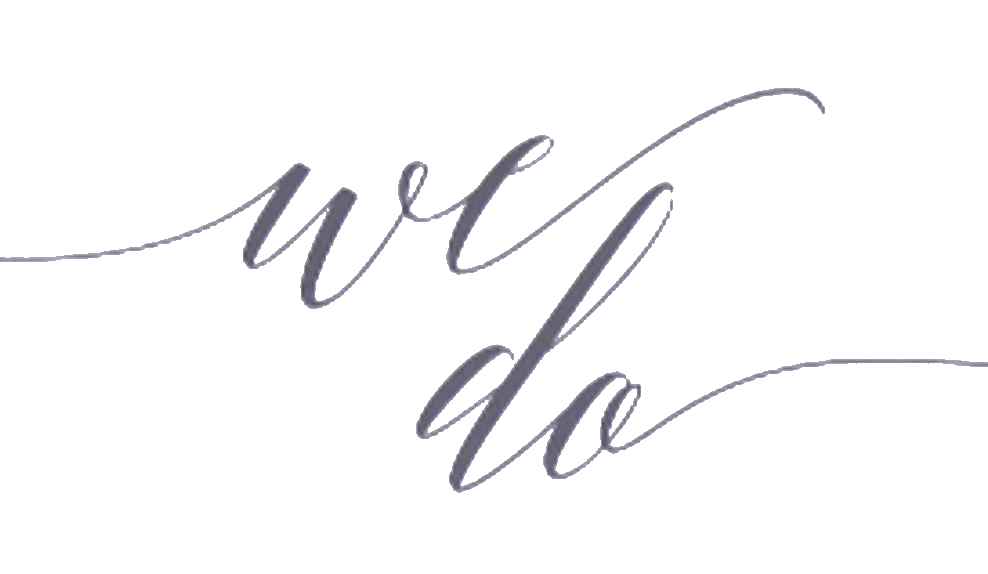 we
do